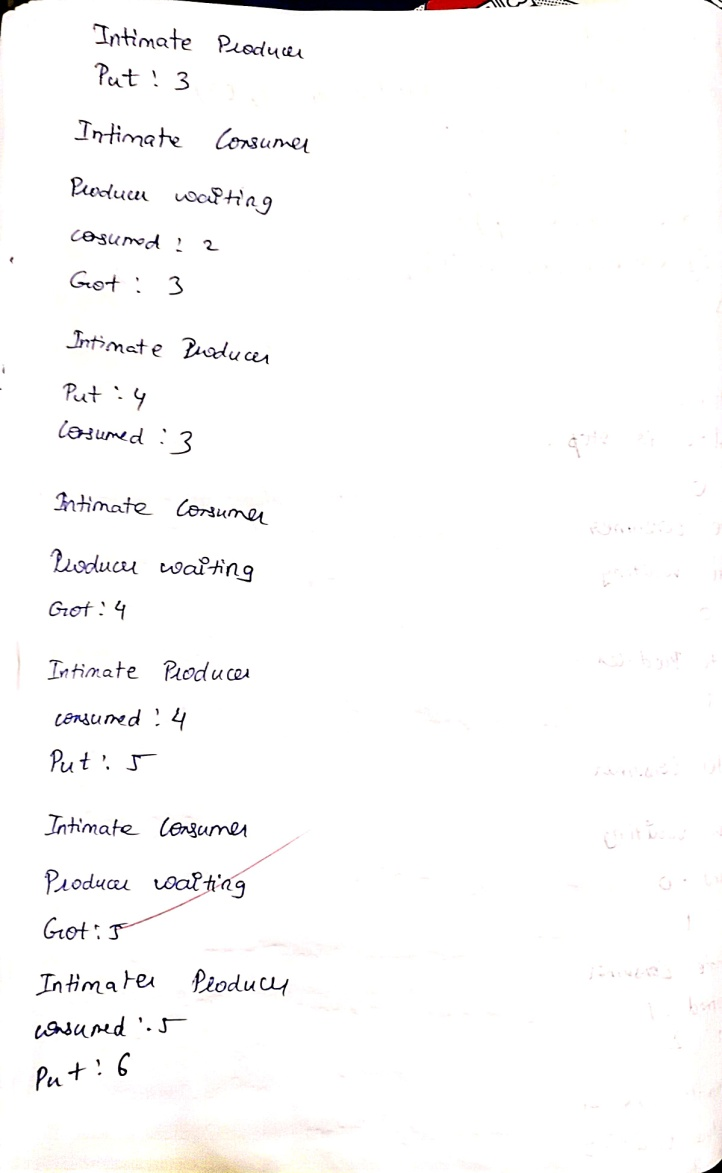 Intimate Producer
Put : 3
Intimate Consumer
Producer waiting
cosumed : 2
Got : 3
Intimate Producer
Put : 4
Cosumed : 3
Intimate Consumer
Producer waiting
Got : 4
Intimate Producer
consumed : 4
Put : 5
Intimate Consumer
Producer waiting
Got : 5
Intimater Producer
consumed : 5
Put : 6